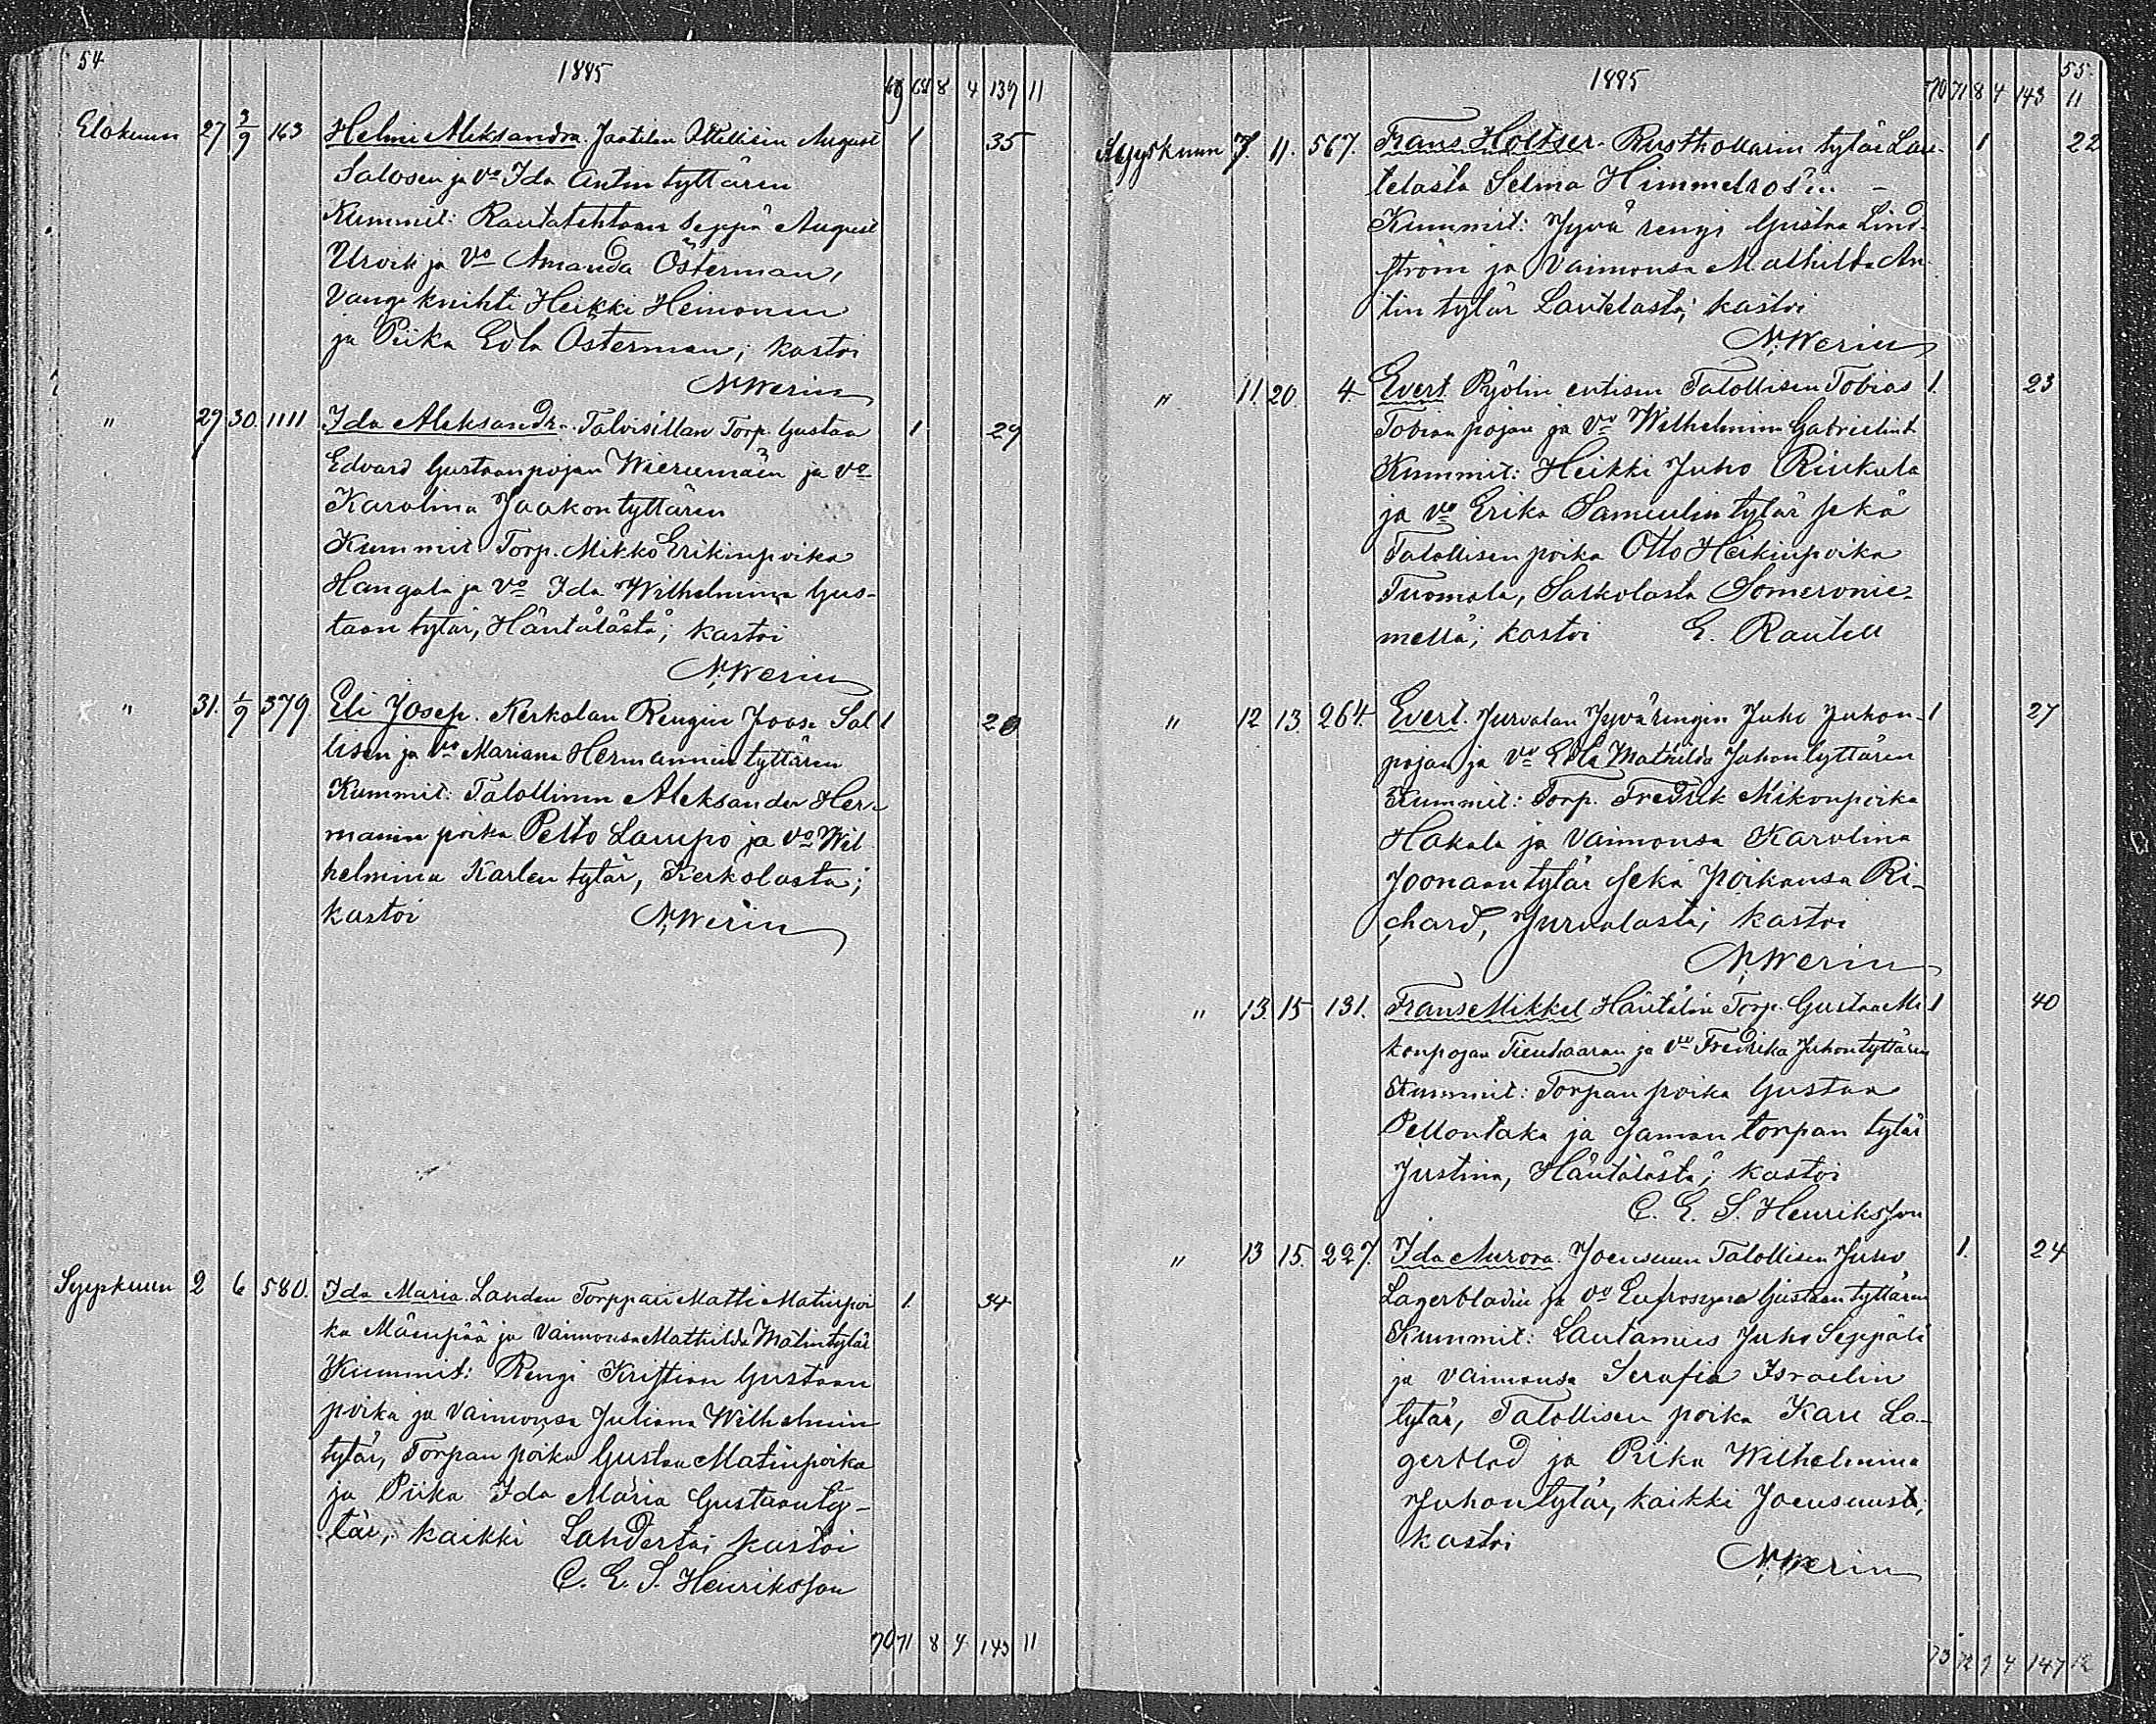 54
1885
69 68 8 4 139 11
Elokuun 27 3/9 163 Helmi Aleksandra. Jaatilan Itsellisen August 1 35
Salosen ja vo Ida Antin tyttären
Kummit: Rautatehtaan Seppä August
Urvik ja Vo Amanda Österman,
Vangi knihti Heikki Heinonen
ja Piika Eva Österman; kastoi
N. Werin
" 29 30. 1111 Ida Aleksandra. Talvisillan Torp. Gustaa 1 29
Edvard Gustaanpojan Wierumäen ja vo
Karolina Jaakontyttären
Kummit: Torp. Mikko Erikinpoika
Hangala ja vo Ida Wilhelmina Gus-
taan tytär, Häntälästä; kastoi
N. Werin
" 31. 1/9 379. Eli Josep. Kerkolan Rengin Joose Sal- 1 20
lisen ja vo Mariana Hermannin tyttären
Kummit: Talollinen Aleksander Her-
mannin poika Pelto Laurpo ja vo Wil-
helmina Karlen tytär, Kerkolasta;
kastoi N. Werin
Syyskuun 2 6 580. Ida Maria. Lahden Torppari Matti Matinpoi 1. 34
ka Mäenpää ja Vaimonsa Mathilda Matintytär
Kummit: Rengi Kristian Gustaan
poika ja Vaimonsa Juliana Wilhelmin
tytär, Torpan poika Gustaa Matinpoika
ja Piika Ida Maria Gustaanty-
tär, kaikki Lahdesta; kastoi
C. E. S. Henriksson
70 71 8 4 143 11
55.
1885
70 71 8 4 143 11
Syyskuun 7. 11. 567. Frans Holtser. Rusthollarin tytär Lau- 1 22
telasta Selma Himmelros'in
Kummit: Jyvä rengi Gustaa Lind-
ström ja Vaimonsa Mathilda An-
tin tytär Lautelasta; kastoi
N. Werin
" 11. 20. 4. Evert. Pyölin entisen Talollisen Tobias 1. 23
Tobiaan pojan ja Vo Wilhelmina Gabrielint.
Kummit: Heikki Juho Riukula
ja vo Erika Samuelin tytär sekä
Talollisen poika Otto Heikinpoika
Tuomola, Saskolasta Somernie-
mellä; kastoi E. Rautell
" 12 13. 264. Evert. Jurvalan Jyvärengin Juho Juhon- 1 27
pojan ja vo Eva Mathilda Juhontyttären
Kummit: Torp. Fredrik Mikonpoika
Hakala ja Vaimonsa Karolina
Joonaantytär sekä Poikansa Ri-
chard, Jurvalasta; kastoi
N. Werin
" 13. 15 131. Frans Mikkel Häntälän Torp. Gustaa Mi 1 40
konpojan Tienhaaran ja vo Fredrika Juhontyttären
Kummit: Torpan poika Gustaa
Pellontaka ja saman torpan tytär
Justina, Häntälästä; kastoi
C. E. S. Henriksson
" 13 15. 227. Ida Aurora. Joensuun Talollisen Juho 1. 24
Lagerbladin ja vo Eufrosyna Gustaan tyttären
Kummit: Lautamies Juho Seppälä
ja Vaimonsa Serafia Israelin
tytär, Talollisen poika Karl La-
gerblad ja Piika Wilhelmina
Juhontytär, kaikki Joensuusta;
kastoi
N. Werin
73 72 9 4 147 12